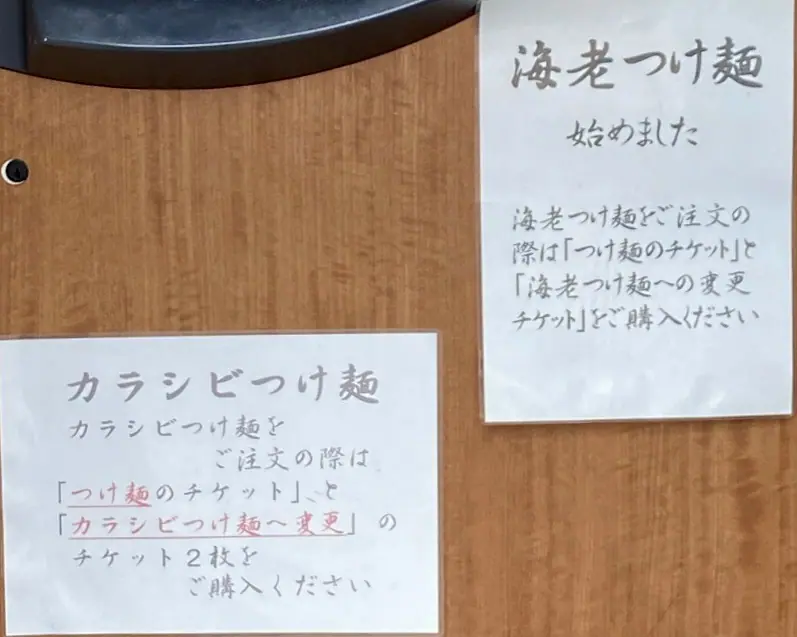 海老つけ麺
始めました
海老つけ麺をご注文の
際は「つけ麺のチケット」と
「海老つけ麺への変更
チケット」をご購入ください
カラシビつけ麺
カラシビつけ麺を
ご注文の際は
「つけ麺のチケット」、と
「カラシビつけ麺へ変更」の
チケット2枚を
ご購入ください